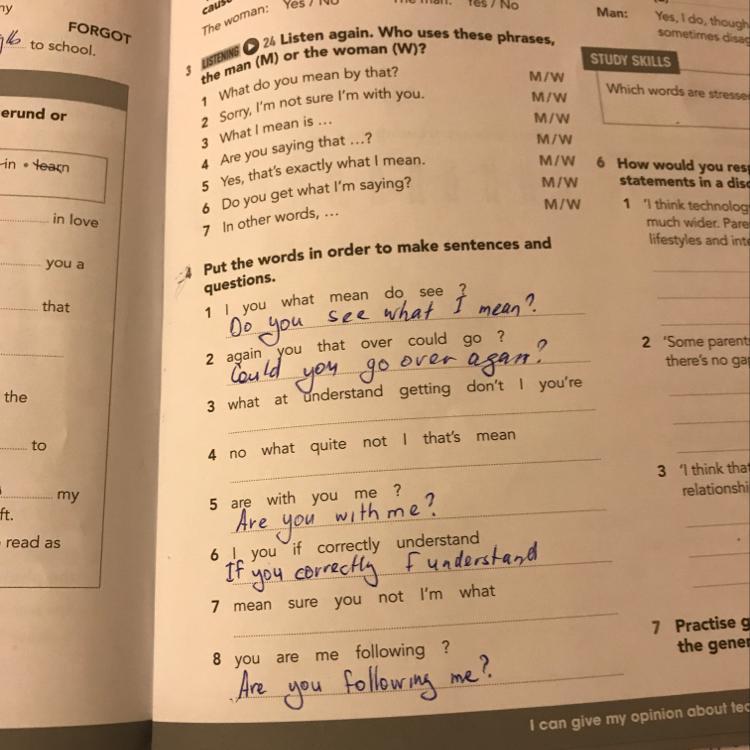 ny
FORGOT
to school.
erund or
in • learn
in love
you a
that
the
to
my
ft.
read as
The woman: Yes / No
Yes / No
3 LISTENING 24 Listen again. Who uses these phrases,
the man (M) or the woman (W)?
1 What do you mean by that? M/W
2 Sorry, I'm not sure I'm with you. M/W
3 What I mean is ... M/W
4 Are you saying that ...? M/W
5 Yes, that's exactly what I mean. M/W
6 Do you get what I'm saying? M/W
7 In other words, ... M/W
4 Put the words in order to make sentences and
questions.
1 I you what mean do see ?
Do you see what I mean?
2 again you that over could go ?
Could you go over agan?
3 what at understand getting don't I you're
4 no what quite not I that's mean
5 are with you me ?
Are you with me?
6 I you if correctly understand
If you correctly I understand
7 mean sure you not I'm what
8 you are me following ?
Are you following me?
Man: Yes, I do, though
sometimes disag
STUDY SKILLS
Which words are stresse
6 How would you resp
statements in a disc
1 'I think technolog
much wider. Pare
lifestyles and inte
2 'Some parent
there's no ga
3 'I think tha
relationshi
7 Practise g
the gener
I can give my opinion about tec